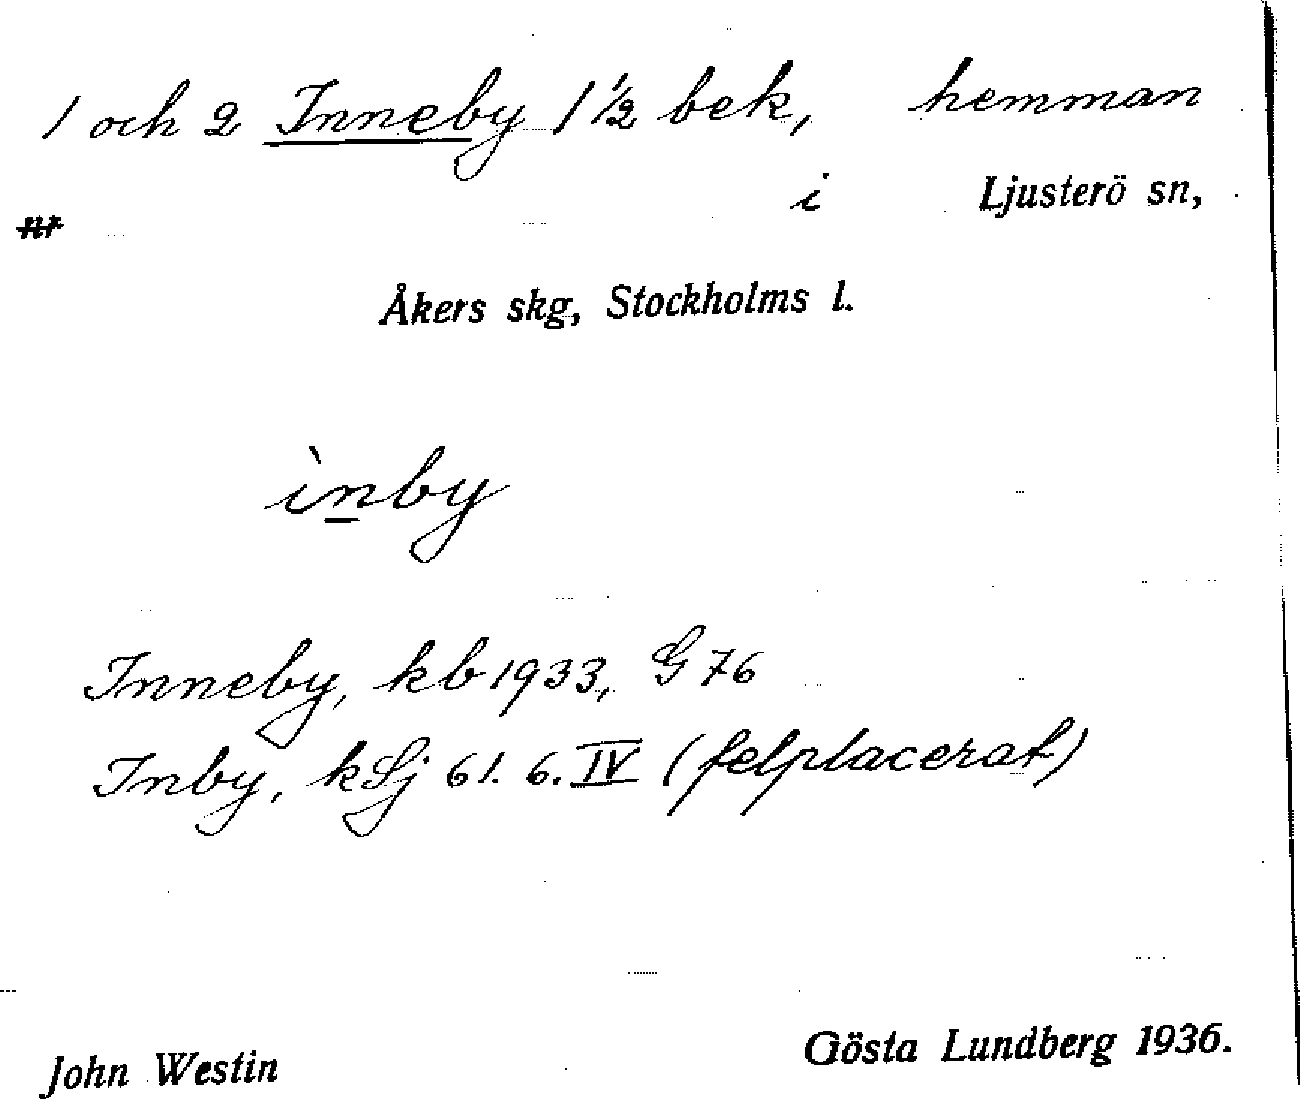 1 och 2 Inneby 1 1/2 bek, hemman
i Ljusterö sn,
nr
Åkers skg, Stockholms l.
ìnby
Inneby, kb 1933, G 76
Inby, kLj 61. 6. IV (felplacerat)
John Westin Gösta Lundberg 1936.